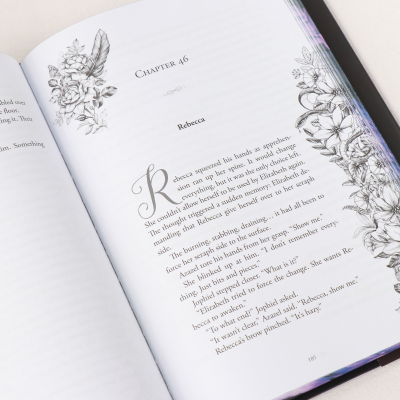 bled over
floor.
ing it. Their
im. Something
CHAPTER 46
Rebecca
Rebecca squeezed his hands as apprehen-
sion ran up her spine. It would change
everything, but it was the only choice left.
She couldn't allow herself to be used by Elizabeth again.
The thought triggered a sudden memory: Elizabeth de-
manding that Rebecca give herself over to her seraph
side.
The burning, stabbing, draining... it had all been to
force her seraph side to the surface.
Azazel tore his hands from her grasp. "Show me."
She blinked up at him. "I don't remember every-
thing. Just bits and pieces."
Jophiel stepped closer. "What is it?"
"Elizabeth tried to force the change. She wants Re-
becca to awaken."
"To what end?" Jophiel asked.
"It wasn't clear," Azazel said. "Rebecca, show me."
Rebecca's brow pinched. "It's hazy."